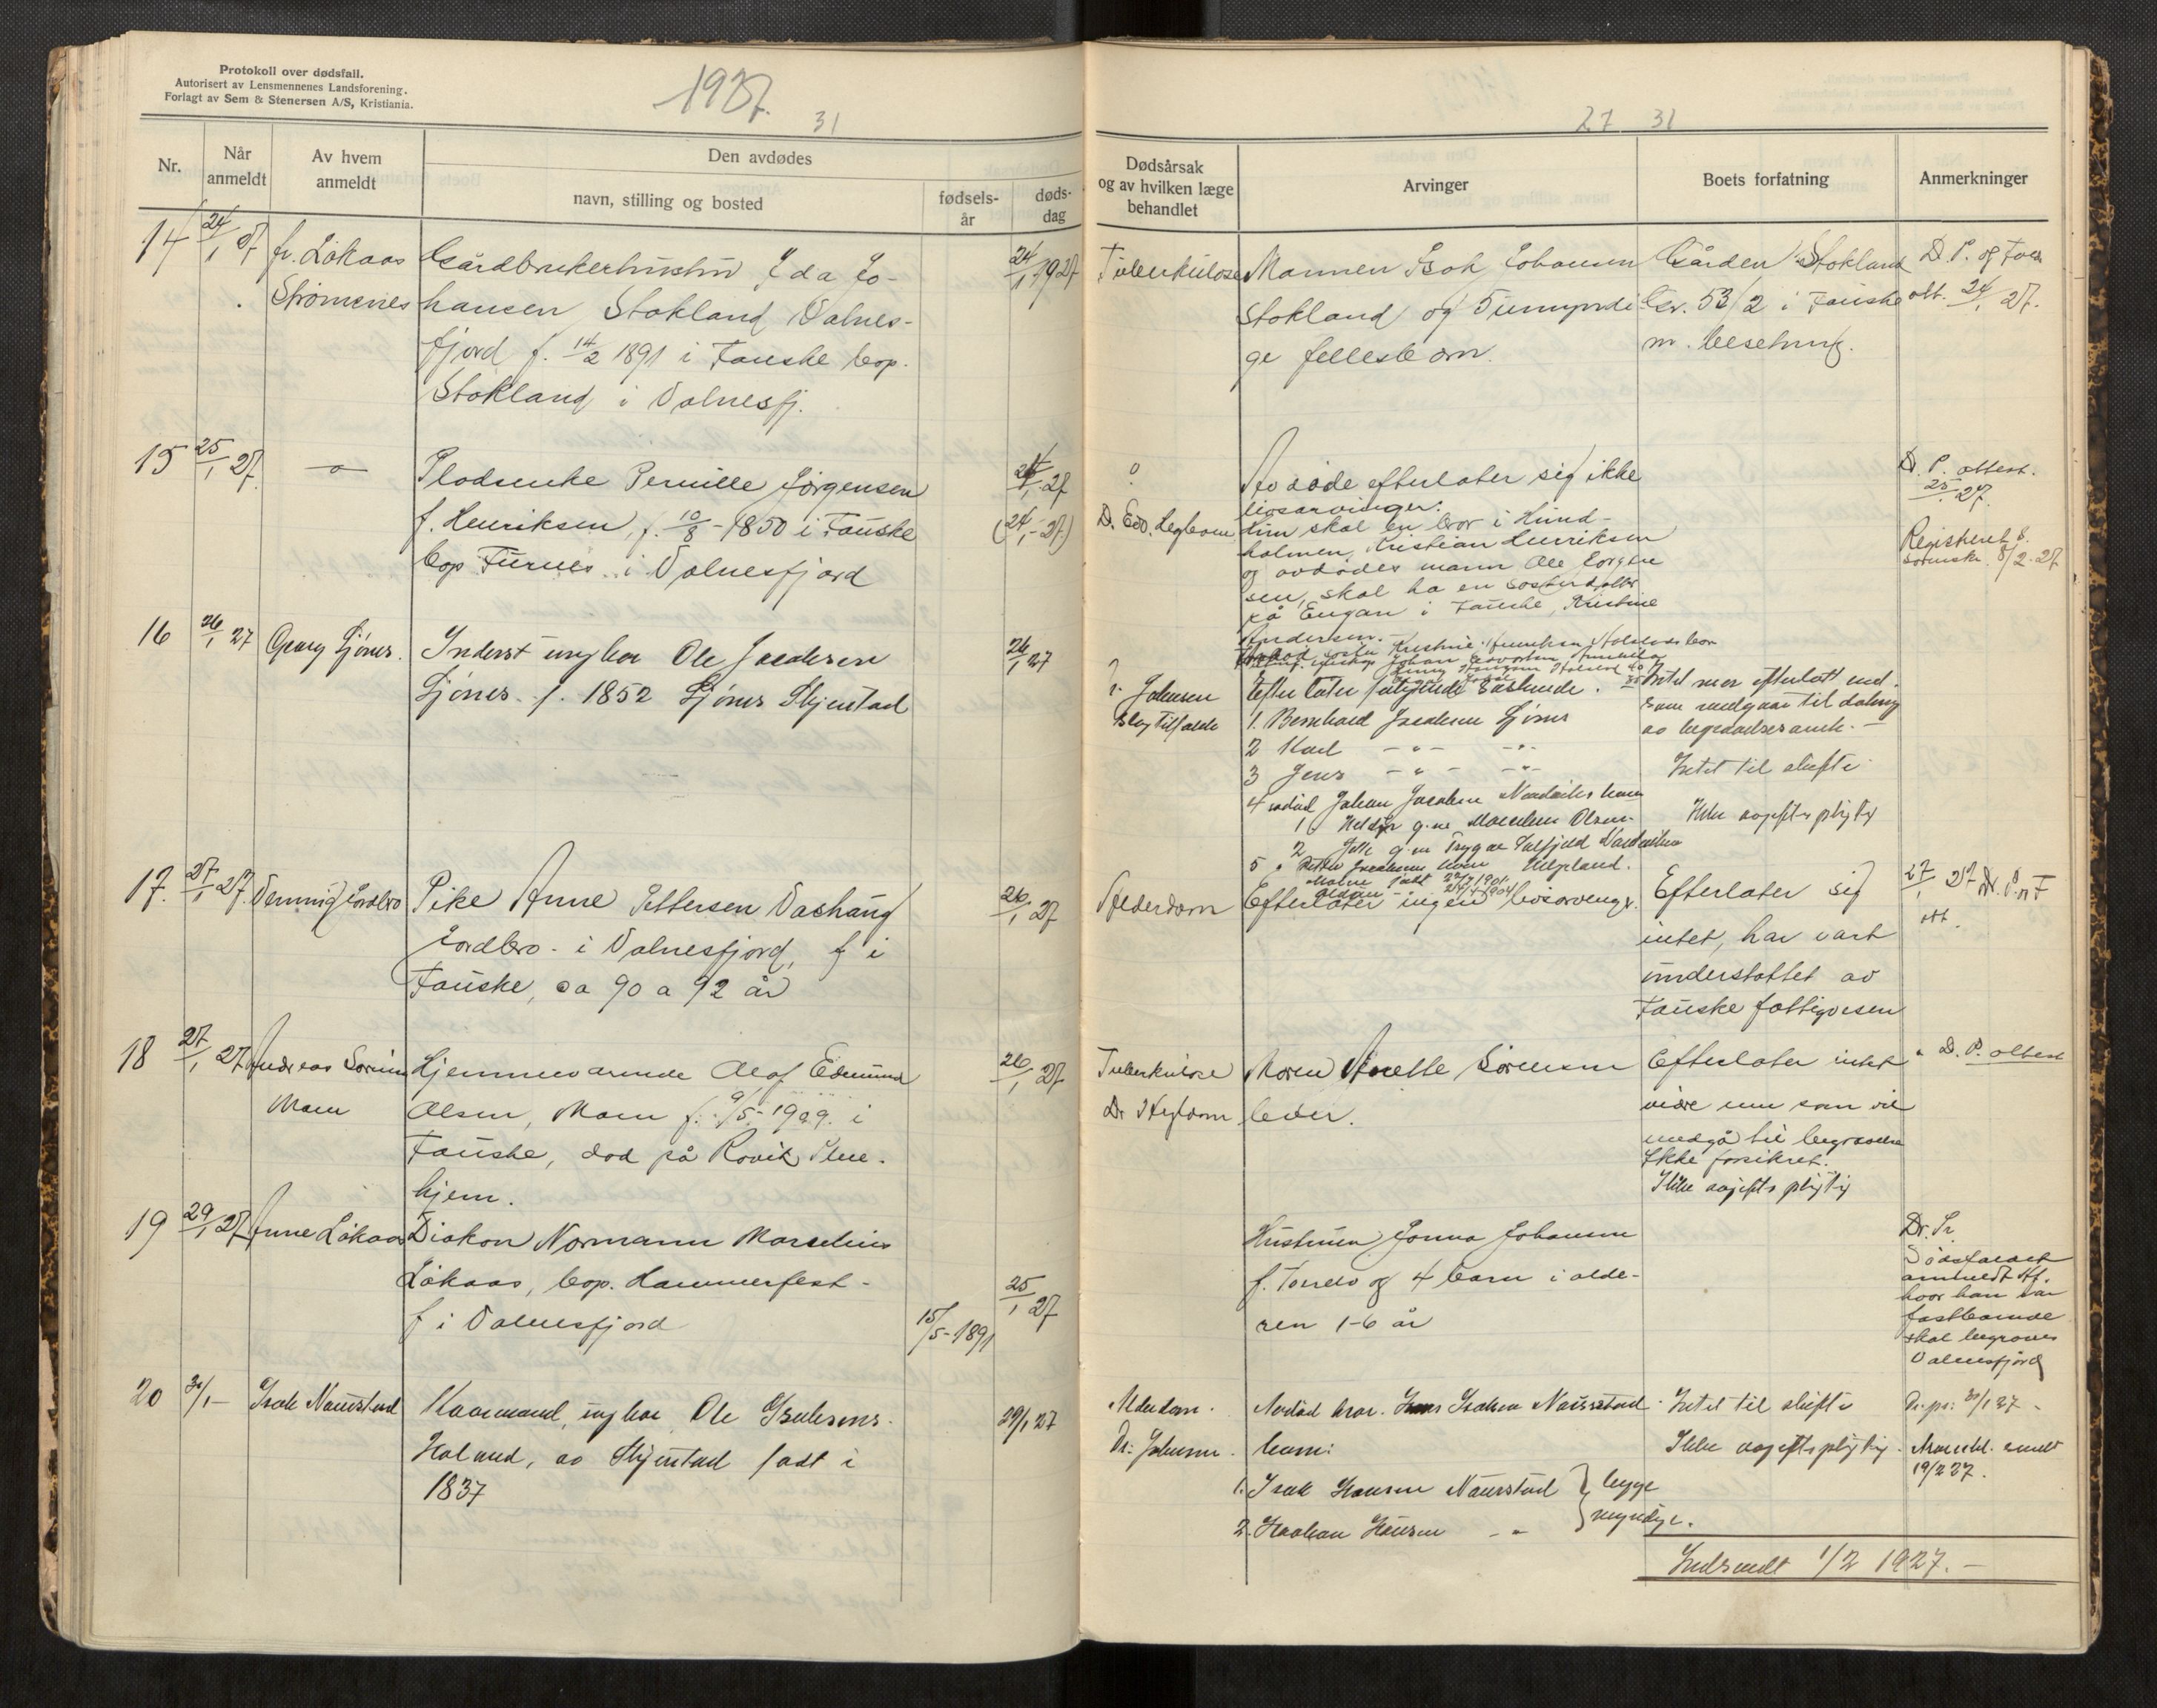 Protokoll over dødsfall.
Autorisert av Lensmennenes Landsforening.
Forlagt av Sem & Stenersen A/S, Kristiania.
1927.
31
27 31
Nr.
Når anmeldt
Av hvem anmeldt
Den avdødes
navn, stilling og bosted
fødsels-år
døds-dag
Dødsårsak
og av hvilken læge
behandlet
Arvinger
Boets forfatning
Anmerkninger
14
24/1 27
fr. Løkaas
Strømsnes
Gårdbrukerhustru Ida Jo-
hansen Stokland Valnes-
fjord f. 14/2 1891 i Fauske bop.
Stokland i Valnesfj.
24/1 1927
Tuberkulose
Mannen Isak Johansen
Stokland og 5 umyndi
ge fellesbarn.
Gården Stokland
Gr. 53/2 i Fauske
m. besetning.
D. P. og
att. 24/1 27.
15
25/1 27.
—"—
Pernille Jørgensen
f. Henriksen, f. 10/8 - 1850 i Fauske
bop Furnes i Valnesfjord
24/1 27
(24/1 - 27.)
?
D. Edv.
Avdøde efterlater sig ikke
livsarvinger.
Hun skal en bror i Hund-
holmen, Kristian Henriksen
og avdødes mann Ole Jørgen
sen, skal ha en søsterdatter
på Engan i Fauske, Kristine
Andersen.-
D. P. attest.
25/1 27.
Registrert s.
8/2 - 27
16
26/1 27
Georg Ljønes.
Inderst ungkar Ole Jacobsen
Ljønes f. 1852 Ljønes Skjerstad
26/1 27
?. Johnsen
slagtilfælde
Efterlater følgende søskende.
1. Bernhard Jacobsen Ljønes
2 Karl —"— —"—
3 Jens —"— —"—
4 avdød Johan Jacobsen
1. g. m. Olsen
2 g. m. Trygve
5
født 22/7 1901.
24/4 1904
Intet mer efterlatt end
som medgaar til dækning
av begravelsesomk. —
Intet til skifte
Ikke avgiftspligtig
17.
27/1 27.
Henning Jordbro
Pike Anne Pettersen Vashaug
Jordbro - i Valnesfjord, f i
Fauske, ca 90 a 92 år
26/1 27
Alderdom
Efterlater ingen livsarvinger.
Efterlater sig
intet, har vært
understøttet av
Fauske fattigvesen
27/1 27 Dr. P. og F
att.
18
27/1 27
Andreas Sørensen
Moen
Hjemmeværende Olaf Edmund
Olsen, Moen f. 9/5 - 1909. i
Fauske, død på Røvik Pleie-
hjem.
26/1 27
Tuberkulose
Moren Anette Sørensen
lever.
Efterlater intet
videre enn som vil
medgå til begravelse
Ikke forsikret.
Ikke avgiftspligtig
D. P. attest
19
29/1 27
Anne Løkaas
Diakon Normann Marselius
Løkaas, bop. Hammerfest -
f i Valnesfjord
15/5 - 1891
25/1 27
Hustruen Jonna Johansen
f. og 4 barn i alde-
ren 1-6 år
Dødsfaldet
anmeldt Hf.
hvor han var
fastboende
skal begraves
Valnesfjord
20
31/1 —
Isak Naurstad
Kaarmand, ungkar Ole Isaksens
av Skjerstad født i
1837
29/1 27
Alderdom.
Dr. Johnsen.
Avdød bror. Hans Isaksen Naurstad
barn:
1. Isak Hansen Naurstad
2. Haakon Hansen —"—
begge
myndige.
Intet til skifte
Ikke avgiftspligtig.
Dr. ps. 31/1 27 -
sendt
19/2 27.
Indsendt 1/2 1927. —